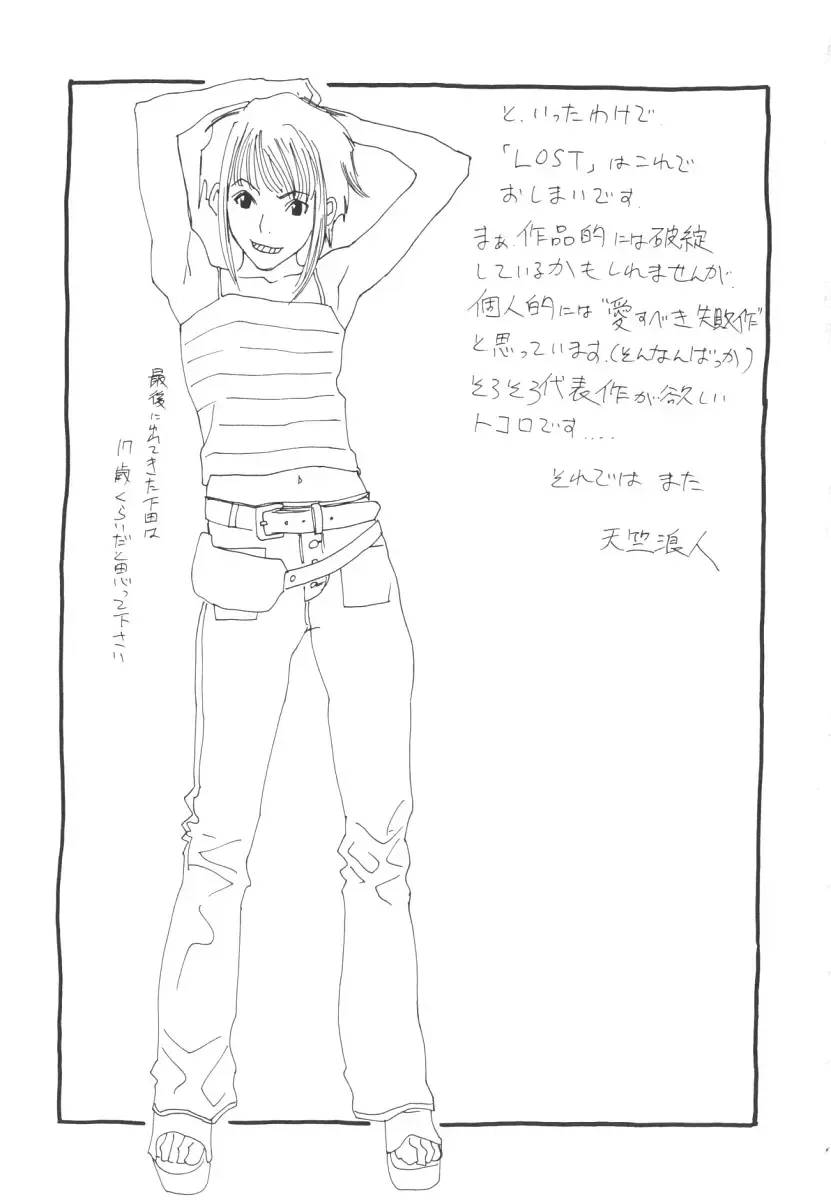 と、いったわけで、
「LOST」はこれで
おしまいです。
まぁ、作品的には破綻
しているかもしれませんが、
個人的には“愛すべき失敗作”
と思っています。(そんなんばっか)
そろそろ代表作が欲しい
トコロです....
それでは また
天竺浪人
最後に出てきた下田は
17歳くらいだと思って下さい